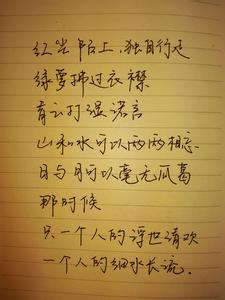 红尘陌上,独自行走
绿萝拂过衣襟
青云打湿诺言
山和水可以两两相忘
日与月可以毫无瓜葛
那时候
只一个人的浮世清欢
一个人的细水长流.